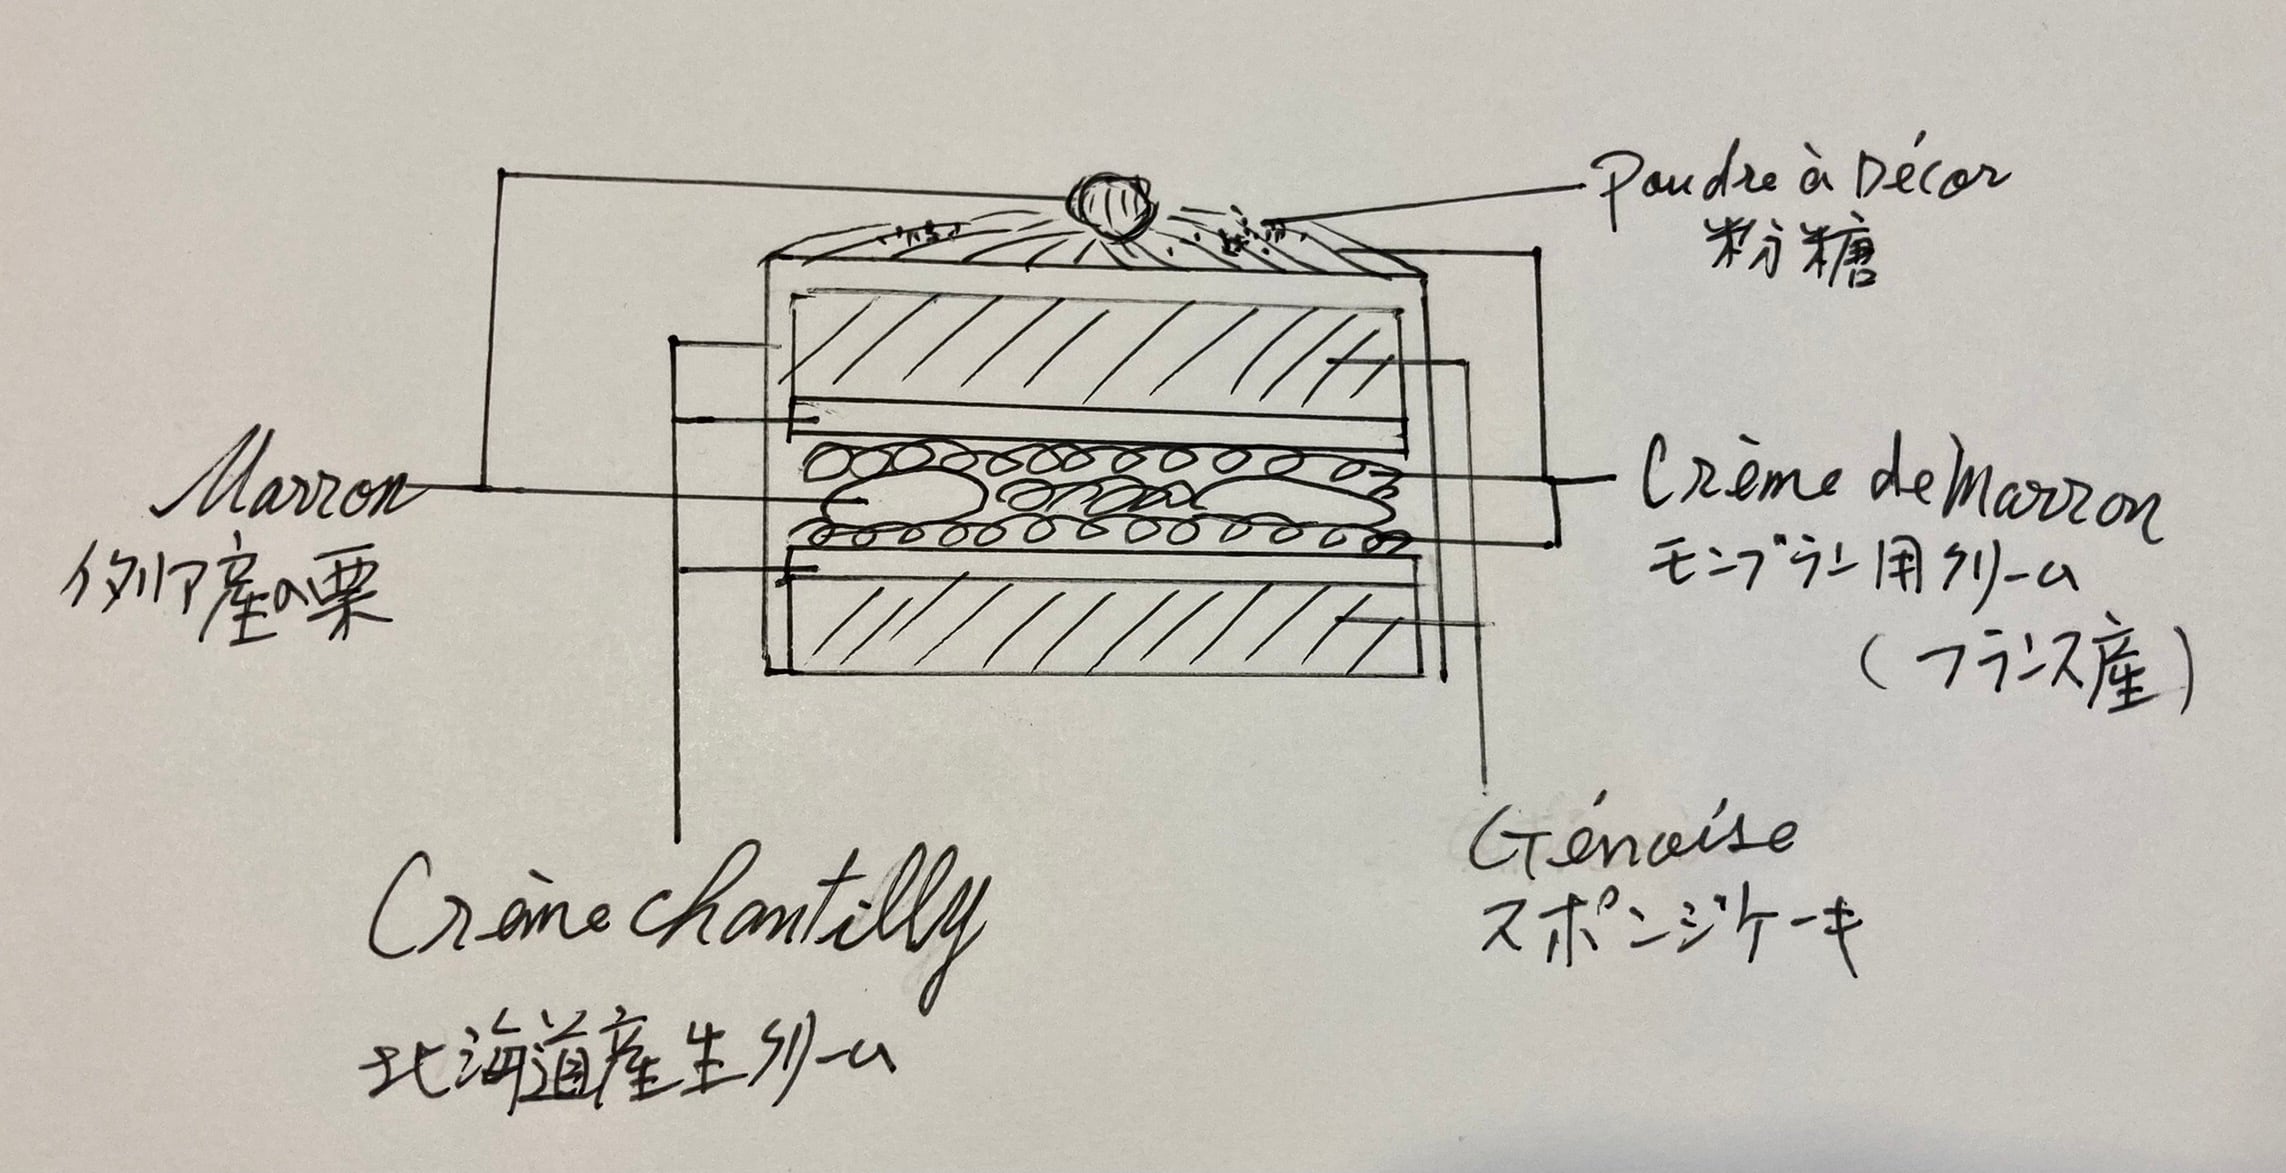 Poudre à Décor
粉糖
Marron
イタリア産の栗
Crème de Marron
モンブラン用クリーム
(フランス産)
Génoise
スポンジケーキ
Crème chantilly
北海道産生クリーム